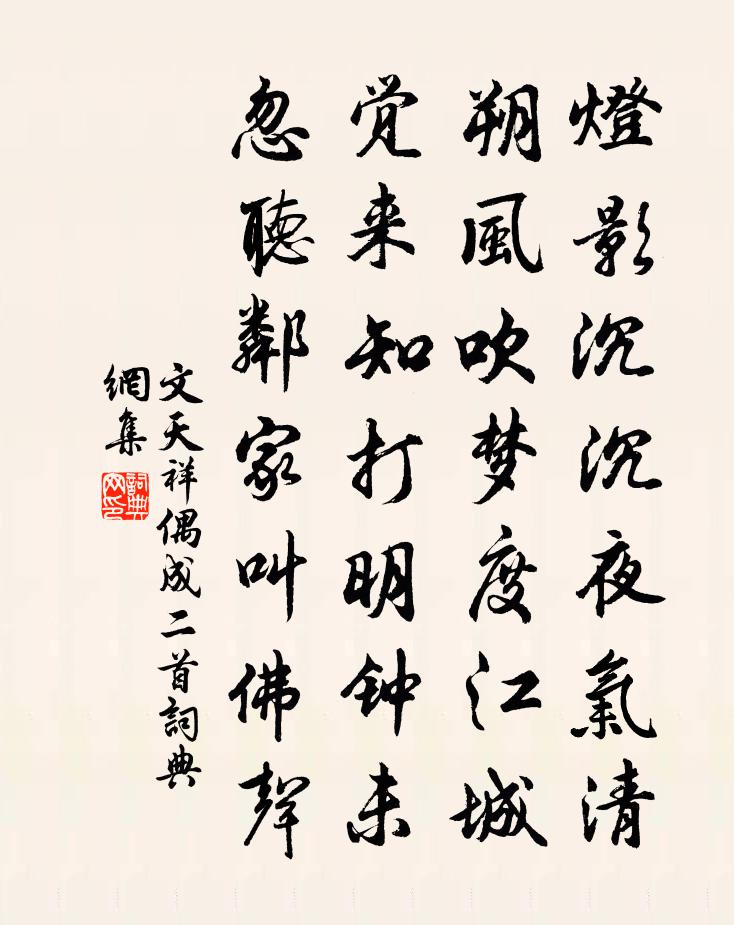 燈影沉沉夜氣清
朔風吹梦度江城
觉来知打明钟未
忽聽鄰家叫佛聲
文天祥偶成二首詞典
網集
詞典
网印